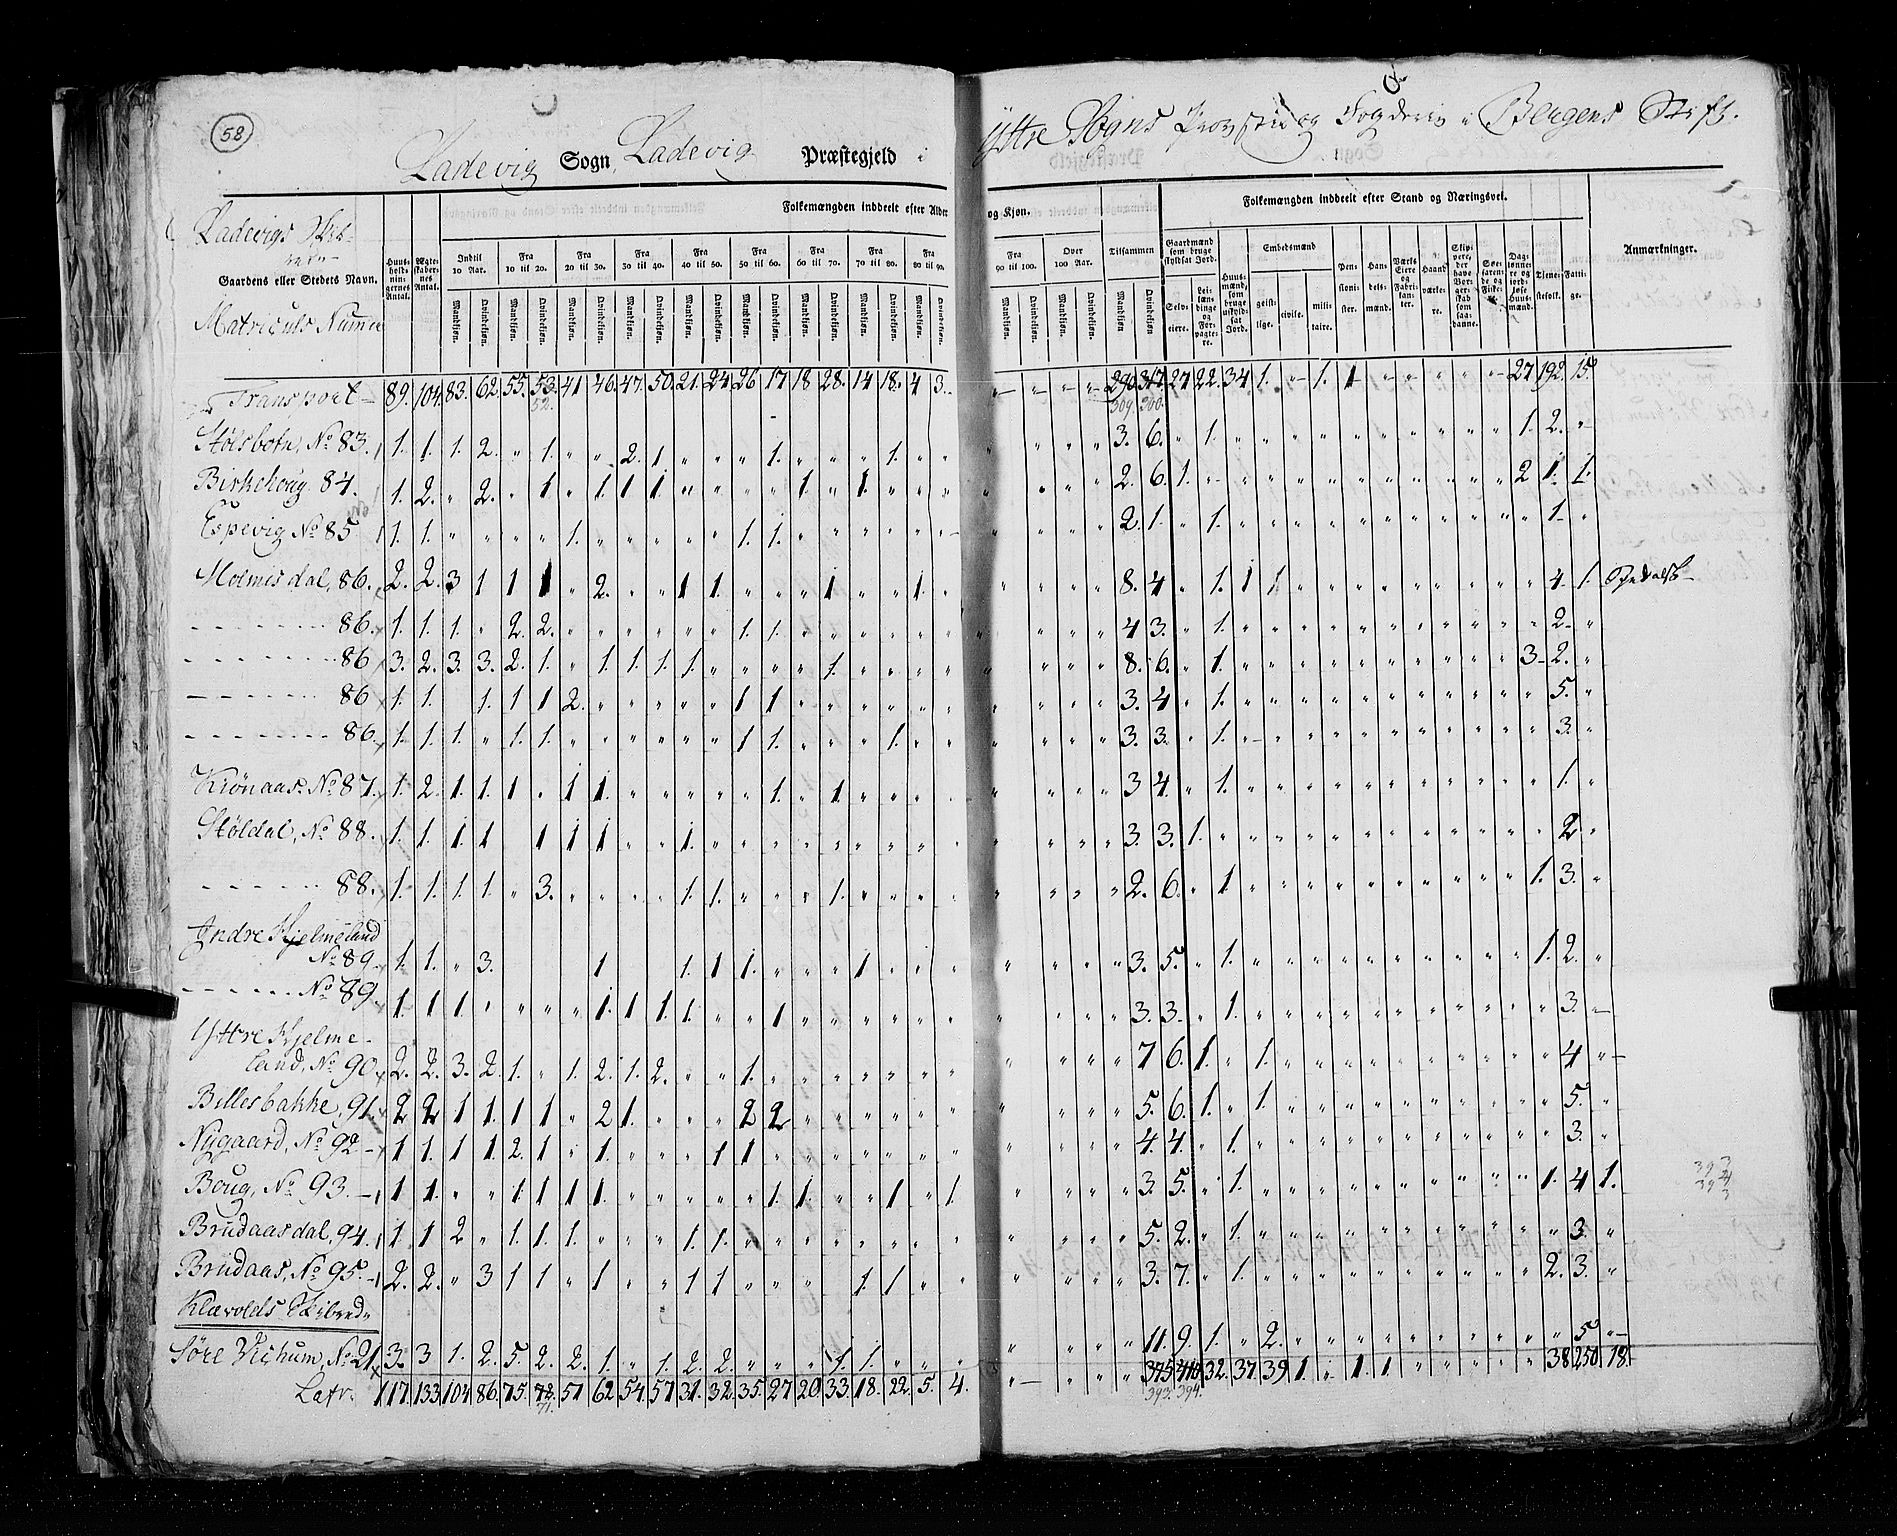 58
Ladevig Sogn, Ladevig Præstegjeld i Yttre Sogns Provstie og Fogderie i Bergens Stift.
Folkemængden inddeelt efter Alder og Kjøn.
Folkemængden inddeelt efter Stand og Næringsvei.
Ladevigs Skib-
Gaardens eller Stedets Navn.
Matriculs Numer
Huus-holdningernes Antal.
Ægteskabernes Antal.
Indtil 10 Aar.
Fra 10 til 20.
Fra 20 til 30.
Fra 30 til 40.
Fra 40 til 50.
Fra 50 til 60.
Fra 60 til 70.
Fra 70 til 80.
Fra 80 til 90.
Fra 90 til 100.
Over 100 Aar.
Tilsammen
Mandkjøn. Qvindekjøn.
Gaardmænd som bruge skyldsat Jord.
Selveiere.
Leilændinge og Forpagtere.
Huusmænd, som bruge uskyldsat Jord.
Embedsmænd
geistlige. civile. militaire.
Pensionister.
Handelsmænd.
Værks Eiere og Fabrikanter.
Haandværkere.
Skippere, der have Borgerskab som saadanne.
Søefarende og Fiskere.
Daglønnere og jordløse Huusmænd.
Tjenestefolk.
Fattige.
Anmærkninger.
Transport 89. 104. 83. 62. 55. 53. 41 46. 47. 50. 21. 24 26 17 18 28. 14 18. 4 3. 290 317. 27 22. 34 1. 1. 1 27 192. 15.
52. 309. 300.
Stølsbotn, No 83. 1. 1. 1. 2. 1. 2. 1 1. 1. 3. 6. 1. 1. 2.
Birkehoug 84. 1. 2. 2. 1 1. 1 1. 1. 1. 2. 6. 1. 2 1. 1.
Espevig No 85 1 1. 1. 1. 1. 2. 1. 1. 1
Holmesdal, 86. 2. 2. 3 1 1 1 2. 1 1. 1 1. 8. 4 1. 1 1 4. 1.
86. 1. 1. 1. 2. 2. 1. 1. 4 3. 1. 2.
86 3. 2. 3. 3. 2. 1. 1. 1. 1. 1. 1. 8. 6. 1. 3 2.
86 1. 1. 1. 1 1 2. 1 1 3. 4 1. 5.
86. 1. 1. 1. 1. 1. 1 1. 1. 3. 3. 1. 3.
Kiønaas. No 87. 1. 2. 1. 1. 1 1 1. 1. 1. 3 4. 1. 1.
Støldal, No 88. 1. 1. 1. 1 1 1 1 1. 3. 3. 1. 2
88. 1. 1. 1. 1. 3. 1. 1. 1. 2. 6. 1 1. 3.
Indre Hjelmeland
No 89 1. 1. 3. 1 1. 1 1. 1 3. 5. 1. 1. 2.
No 89 1. 1 1. 1. 1 1. 1. 1 3. 3. 1. 3.
Yttre Hjelme-
land, No 90 2. 2. 3. 2. 1. 1. 2. 1. 2. 1. 7 6. 1. 1. 4
Billesbakke, 91 2 2 1 1. 1 1 2 1. 2 2 5. 6. 1. 1. 5.
Nygaard, No 92 1 1. 1 1. 2. 1 1. 1 1. 4. 4. 1. 3.
Boug, No 93. 1 1. 1. 1 1 1. 1. 1. 1 1. 3. 5. 1. 1. 4 1.
Brudaasdal, 94. 1 1 2 1. 1. 1. 1. 1. 5. 2. 1. 3.
Brudaas, No 95. 2. 2. 3 1 1 1 1 1 1. 1. 3. 7. 1. 2. 3.
Klævolds Skibred
Søre Vichum, No 21 3. 3 1. 2. 5. 2. 2. 1. 1. 2. 2. 1. 1. 11. 9. 1. 2. 5
Latr. 117. 133 104 86. 75. 72. 51 62. 54. 57 31. 32. 35. 27 20. 33. 18. 22. 5. 4. 375 410 32. 37. 39 1. 1. 1. 38 250 18.
71. 393. 394.